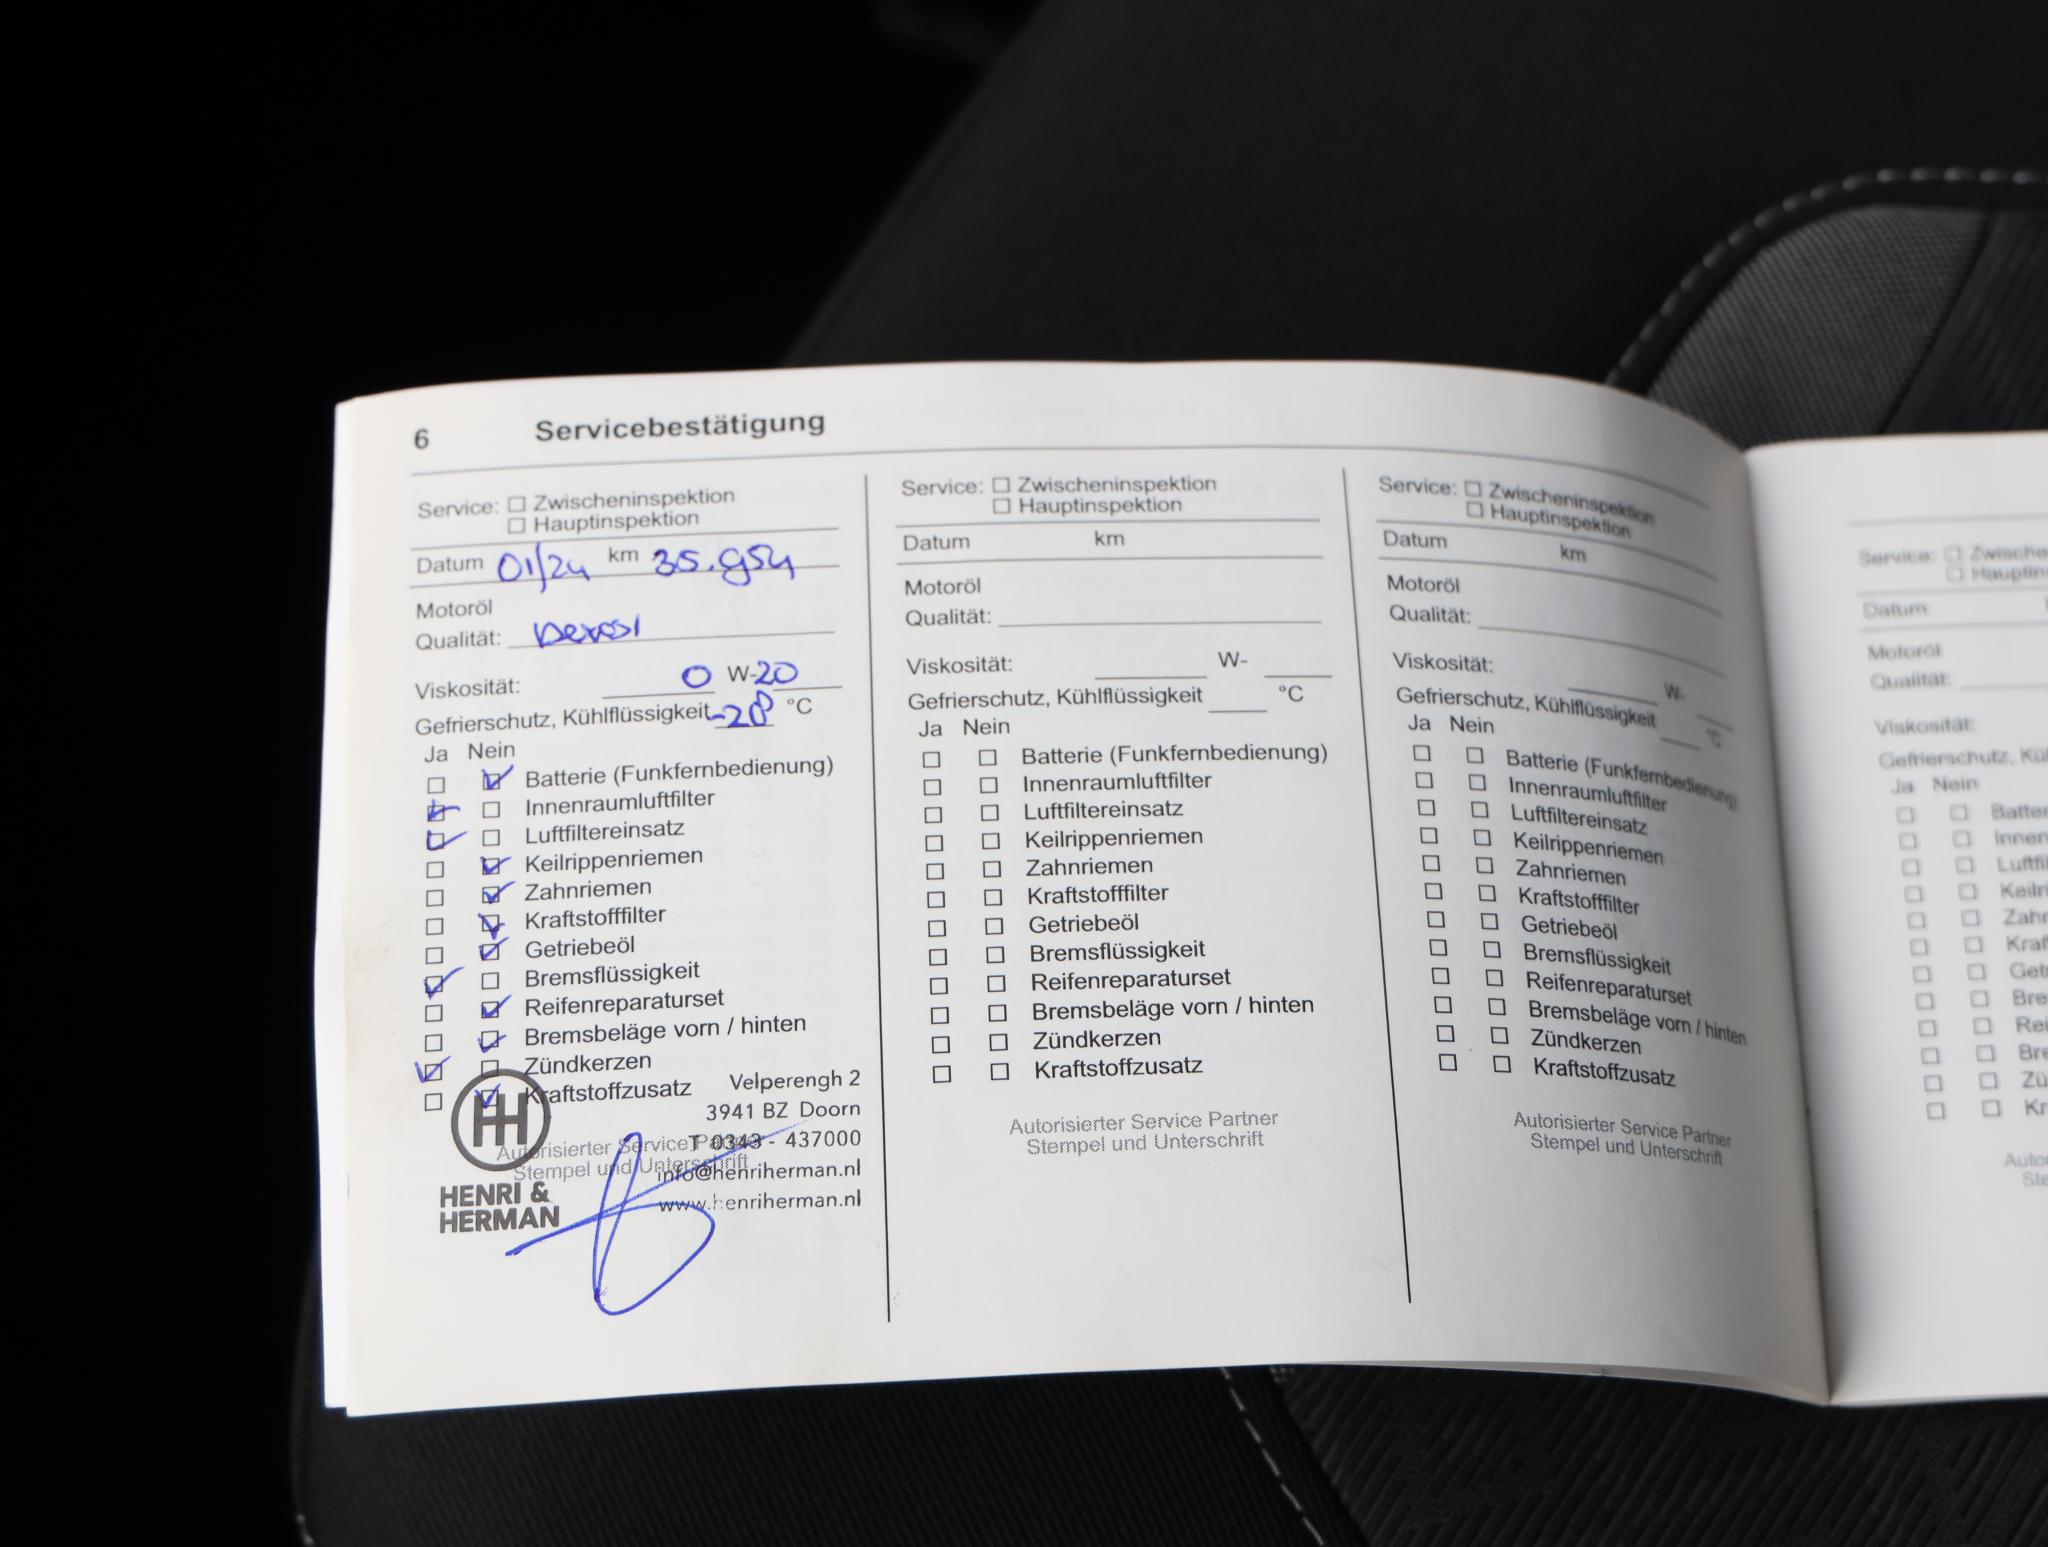 6 Servicebestätigung
Service: ☐ Zwischeninspektion
☐ Hauptinspektion
Datum 01/24 km 35.954
Motoröl
Qualität: Dexos1
Viskosität: 0 W-20
Gefrierschutz, Kühlflüssigkeit -28° °C
Ja Nein
Batterie (Funkfernbedienung)
Innenraumluftfilter
Luftfiltereinsatz
Keilrippenriemen
Zahnriemen
Kraftstofffilter
Getriebeöl
Bremsflüssigkeit
Reifenreparaturset
Bremsbeläge vorn / hinten
Zündkerzen
Kraftstoffzusatz
Autorisierter Service Partner
Stempel und Unterschrift
HENRI &
HERMAN
Velperengh 2
3941 BZ Doorn
T 0343 - 437000
info@henriherman.nl
www.henriherman.nl
Service: ☐ Zwischeninspektion
☐ Hauptinspektion
Datum km
Motoröl
Qualität:
Viskosität: W-
Gefrierschutz, Kühlflüssigkeit °C
Ja Nein
Batterie (Funkfernbedienung)
Innenraumluftfilter
Luftfiltereinsatz
Keilrippenriemen
Zahnriemen
Kraftstofffilter
Getriebeöl
Bremsflüssigkeit
Reifenreparaturset
Bremsbeläge vorn / hinten
Zündkerzen
Kraftstoffzusatz
Autorisierter Service Partner
Stempel und Unterschrift
Service: ☐ Zwischeninspektion
☐ Hauptinspektion
Datum km
Motoröl
Qualität:
Viskosität: W-
Gefrierschutz, Kühlflüssigkeit °C
Ja Nein
Batterie (Funkfernbedienung)
Innenraumluftfilter
Luftfiltereinsatz
Keilrippenriemen
Zahnriemen
Kraftstofffilter
Getriebeöl
Bremsflüssigkeit
Reifenreparaturset
Bremsbeläge vorn / hinten
Zündkerzen
Kraftstoffzusatz
Autorisierter Service Partner
Stempel und Unterschrift
Service: ☐ Zwische
☐ Hauptins
Datum
Motoröl
Qualität:
Viskosität:
Gefrierschutz, Kü
Ja Nein
Batte
Innen
Luftfil
Keilri
Zahn
Kraf
Getr
Bre
Rei
Bre
Zü
Kr
Auto
Ste